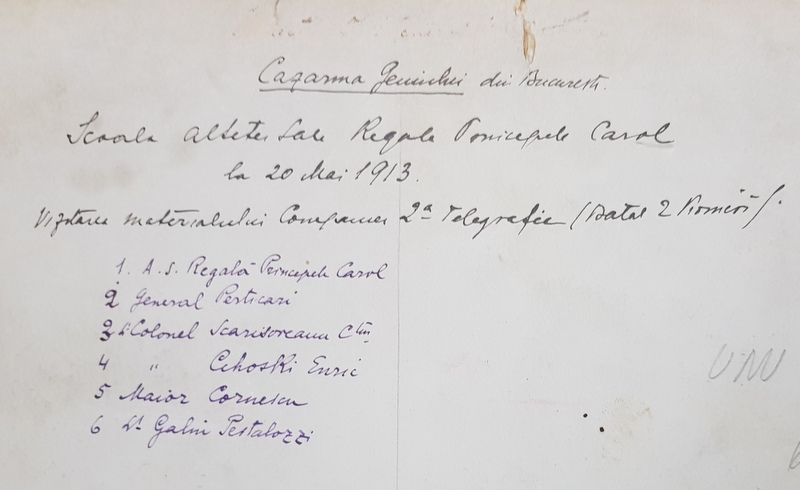 Cazarma Geniului din Bucuresti.
Scoala Altetei Sale Regale Principele Carol
la 20 Mai 1913.
Vizitarea materialului Companiei 2ª Telegrafie (Batal 2 Pionieri).
1. A. S. Regală Principele Carol
2 General Perticari
3 Lt Colonel Scarisoreanu Ctin
4 " Cihoski Enric
5 Maior Cornescu
6 Lt Galin Pestalozzi